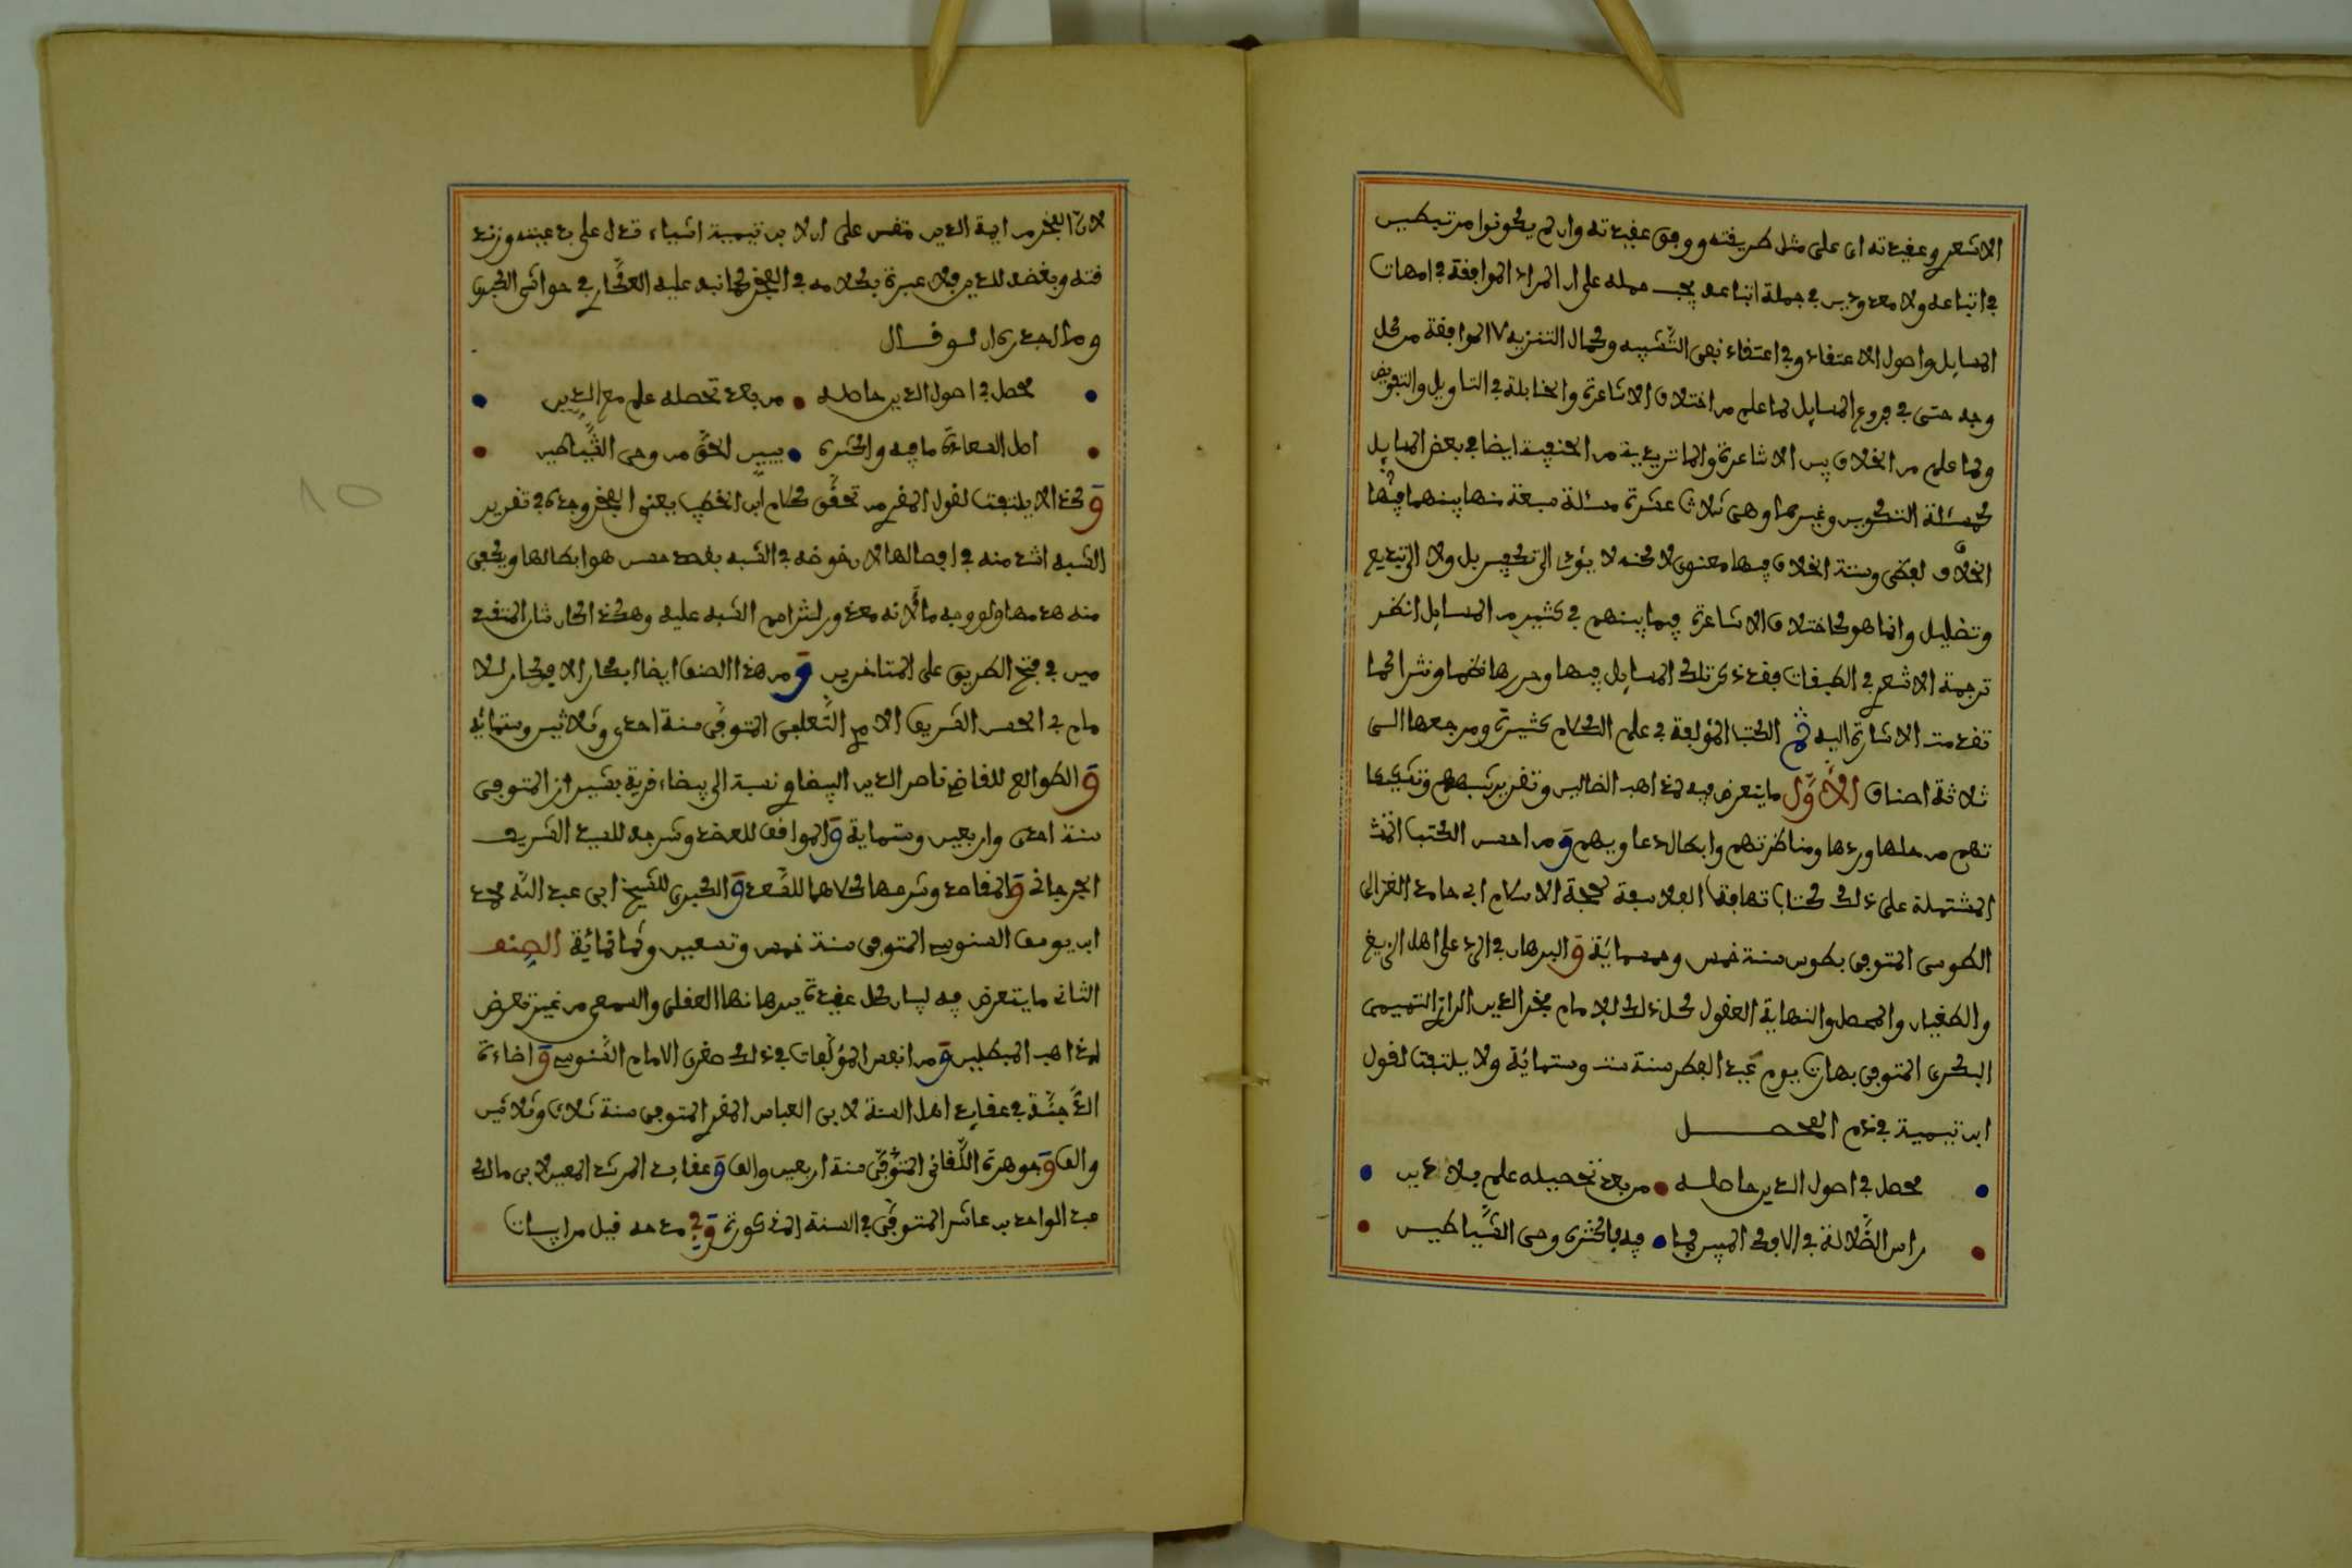 الاشعري وعقيدته اى على مثل طريقته ووفق عقيدته وان لم يكونوا مرتبطين
في اتباعه ولا معدودين في جملة اتباعه يجب حمله على ان المراد الموافقة في امهات
المسايل واصول الاعتقاد وفي اعتقاد نفى التشبيه وكمال التنزيه لا الموافقة من كل
وجه حتى في فروع المسايل لما علم من اختلاف الاشاعرة والحنابلة في التاويل والتفويض
ولما علم من الخلاف بين الاشاعرة والماتريدية من الحنفية ايضا في بعض المسايل
كمسئلة التكوين وغيرها وهى ثلاث عشرة مسئلة سبعة منها بينهما فيها
الخلاف لفظى وستة الخلاف فيها معنوى لاكنه لا يؤدى الى تكفير بل ولا الى تبديع
وتضليل وانما هو كاختلاف الاشاعرة فيما بينهم في كثير من المسايل انظر
ترجمة الاشعري في الطبقات فقد ذكر تلك المسايل فيها وحررها نظما ونثرا كما
تقدمت الاشارة اليه ثم الكتب المؤلفة في علم الكلام كثيرة ومرجعها الى
ثلاثة اصناف الاول ما يتعرض فيه لمذاهب الضالين وتقرير شبههم وتشكيكا
تهم من حلها وردها ومناظرتهم وابطال دعاويهم ومن احسن الكتب
المشتملة على ذلك كتاب تهافت الفلاسفة لحجة الاسلام ابى حامد الغزالى
الطوسى المتوفى بطوس سنة خمس وخمسماية والبرهان في الرد على اهل الزيغ
والطغيان والمحصل والنهاية العقول كل ذلك للامام فخر الدين الرازى التميمى
البكرى المتوفى بهراة يوم عيد الفطر سنة ست وستمائة ولا يلتفت لقول
ابن تيمية في ذم المحصل
محصل في اصول الدين حاصله من بعد تحصيله علم بلا دين
راس الضلالة في الافك المبين فما فيه فاكثره وحى الشياطين
لان الفخر من اية الدين نقض على ابن تيمية اشياء تدل على بدعته وزند
قته وبغضه للدين فلا عبرة بكلامه في الفخر كما نبه عليه العطار في حواشى الخبيصى
وما اجدرى ان لو قال
محصل في اصول الدين حاصله من بعد تحصله علم مع الدين
اصل السعادة ما فيه واكثره يبين الحق من وحى الشياطين
وكذا لا يلتفت لقول المقرى من تحقق كلام ابن الخطيب يعنى الفخر وجده في تقرير
الشبه اشد منه في ابطالها لان خوضه في الشبه بقصد حسن هو ابطالها ويكفى
منه هدمها ولو بوجه ما لانه معذور لتزاحم الشبه عليه وهكذا كان شان المتقد
مين في فتح الطريق على المتاخرين ومن هذا الصنف ايضا ابكار الافكار للا
مام ابى الحسن الشريف الامدى التغلبى المتوفى سنة احدى وثلاثين وستمائة
والطوالع للقاضى ناصر الدين البيضاوى نسبة الى بيضاء قرية بشيراز المتوفى
سنة احدى واربعين وستماية والمواقف للعضد وشرحه للسيد الشريف
الجرجانى والمقاصد وشرحها كلاهما للسعد والكبرى للشيخ ابى عبد الله محمد
ابن يوسف السنوسى المتوفى سنة خمس وتسعين وثمانمائة الصنف
الثانى ما يتعرض فيه لبيان كل عقيدة ببرهانها العقلى والسمعى من غير تعرض
لمذاهب المبطلين ومن انفس المؤلفات في ذلك صغرى الامام السنوسى واضاءة
الدجنة في عقايد اهل السنة لابى العباس المقرى المتوفى سنة ثلاث وثلاثين
والف وجوهرة اللقانى المتوفى سنة اربعين والف وعقايد المرشد المعين لابى مالك
عبد الواحد بن عاشر المتوفى في السنة المذكورة وفى مدحه قيل من ابيات
10